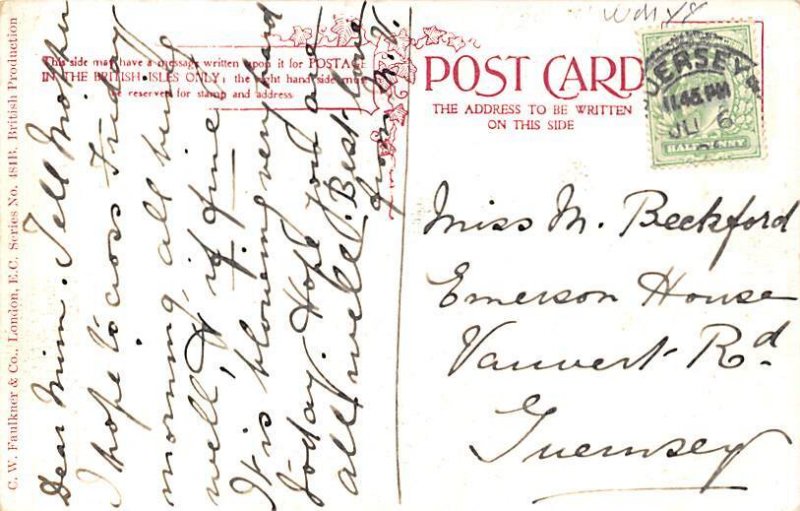 C. W. Faulkner & Co., London, E.C. Series No. 481B. British Production
This side may have a message written upon it for POSTAGE
IN THE BRITISH ISLES ONLY; the right hand side must
be reserved for stamp and address
POST CARD
THE ADDRESS TO BE WRITTEN
ON THIS SIDE
JERSEY
11.45 PM
JU 6
HALFPENNY
Dear Mim. Tell Mother
I hope to cross Friday
morning, all being
well, & if fine
It is blowing very hard
to-day. Hope you are
all well. Best love
from
Miss M. Beckford
Emerson House
Vauvert Rd
Guernsey